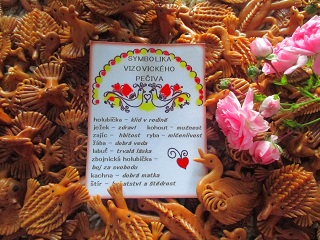 SYMBOLIKA
VIZOVICKÉHO
PEČIVA
holubička – klid v rodině
ježek – zdraví kohout – mužnost
zajíc – hbitost ryba – mlčenlivost
žába – dobrá voda
labuť – trvalá láska
zbojnická holubička –
boj za svobodu
kachna – dobrá matka
štír – bohatství a štědrost